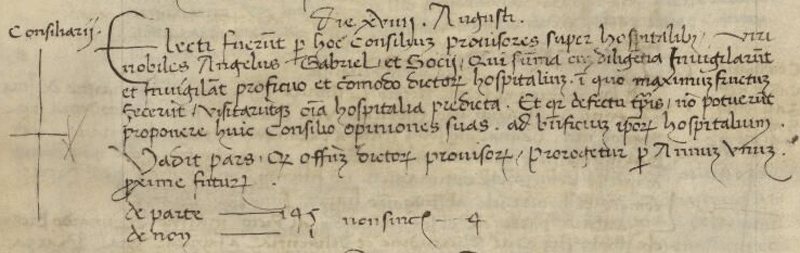 Die xviii. Augusti.
Consiliarij.
Electi fuerūt p hoc Consiliuȝ prouisores super hospitalibȝ, viri
nobiles Angelus Gabriel et Socij, Qui sūma cū diligētia Inuigilarūt
et Inuigilāt proficuo et cōmodo dictoꝝ hospitaliuȝ. ī quo maximuȝ fructuȝ
fecerūt, visitarūtqȝ oīa hospitalia predicta. Et qꝛ defectu tp̄is, nō potuerūt
proponere huic Consilio opiniones suas. ad bn̄ficiuȝ ip̄oꝝ hospitalium.
Vadit pars, qꝛ offm̄ dictoꝝ prouisoꝝ, prorogetur p Annuȝ vnuȝ
proxime futuꝝ.
de parte 145 non sincere 4
de non 1